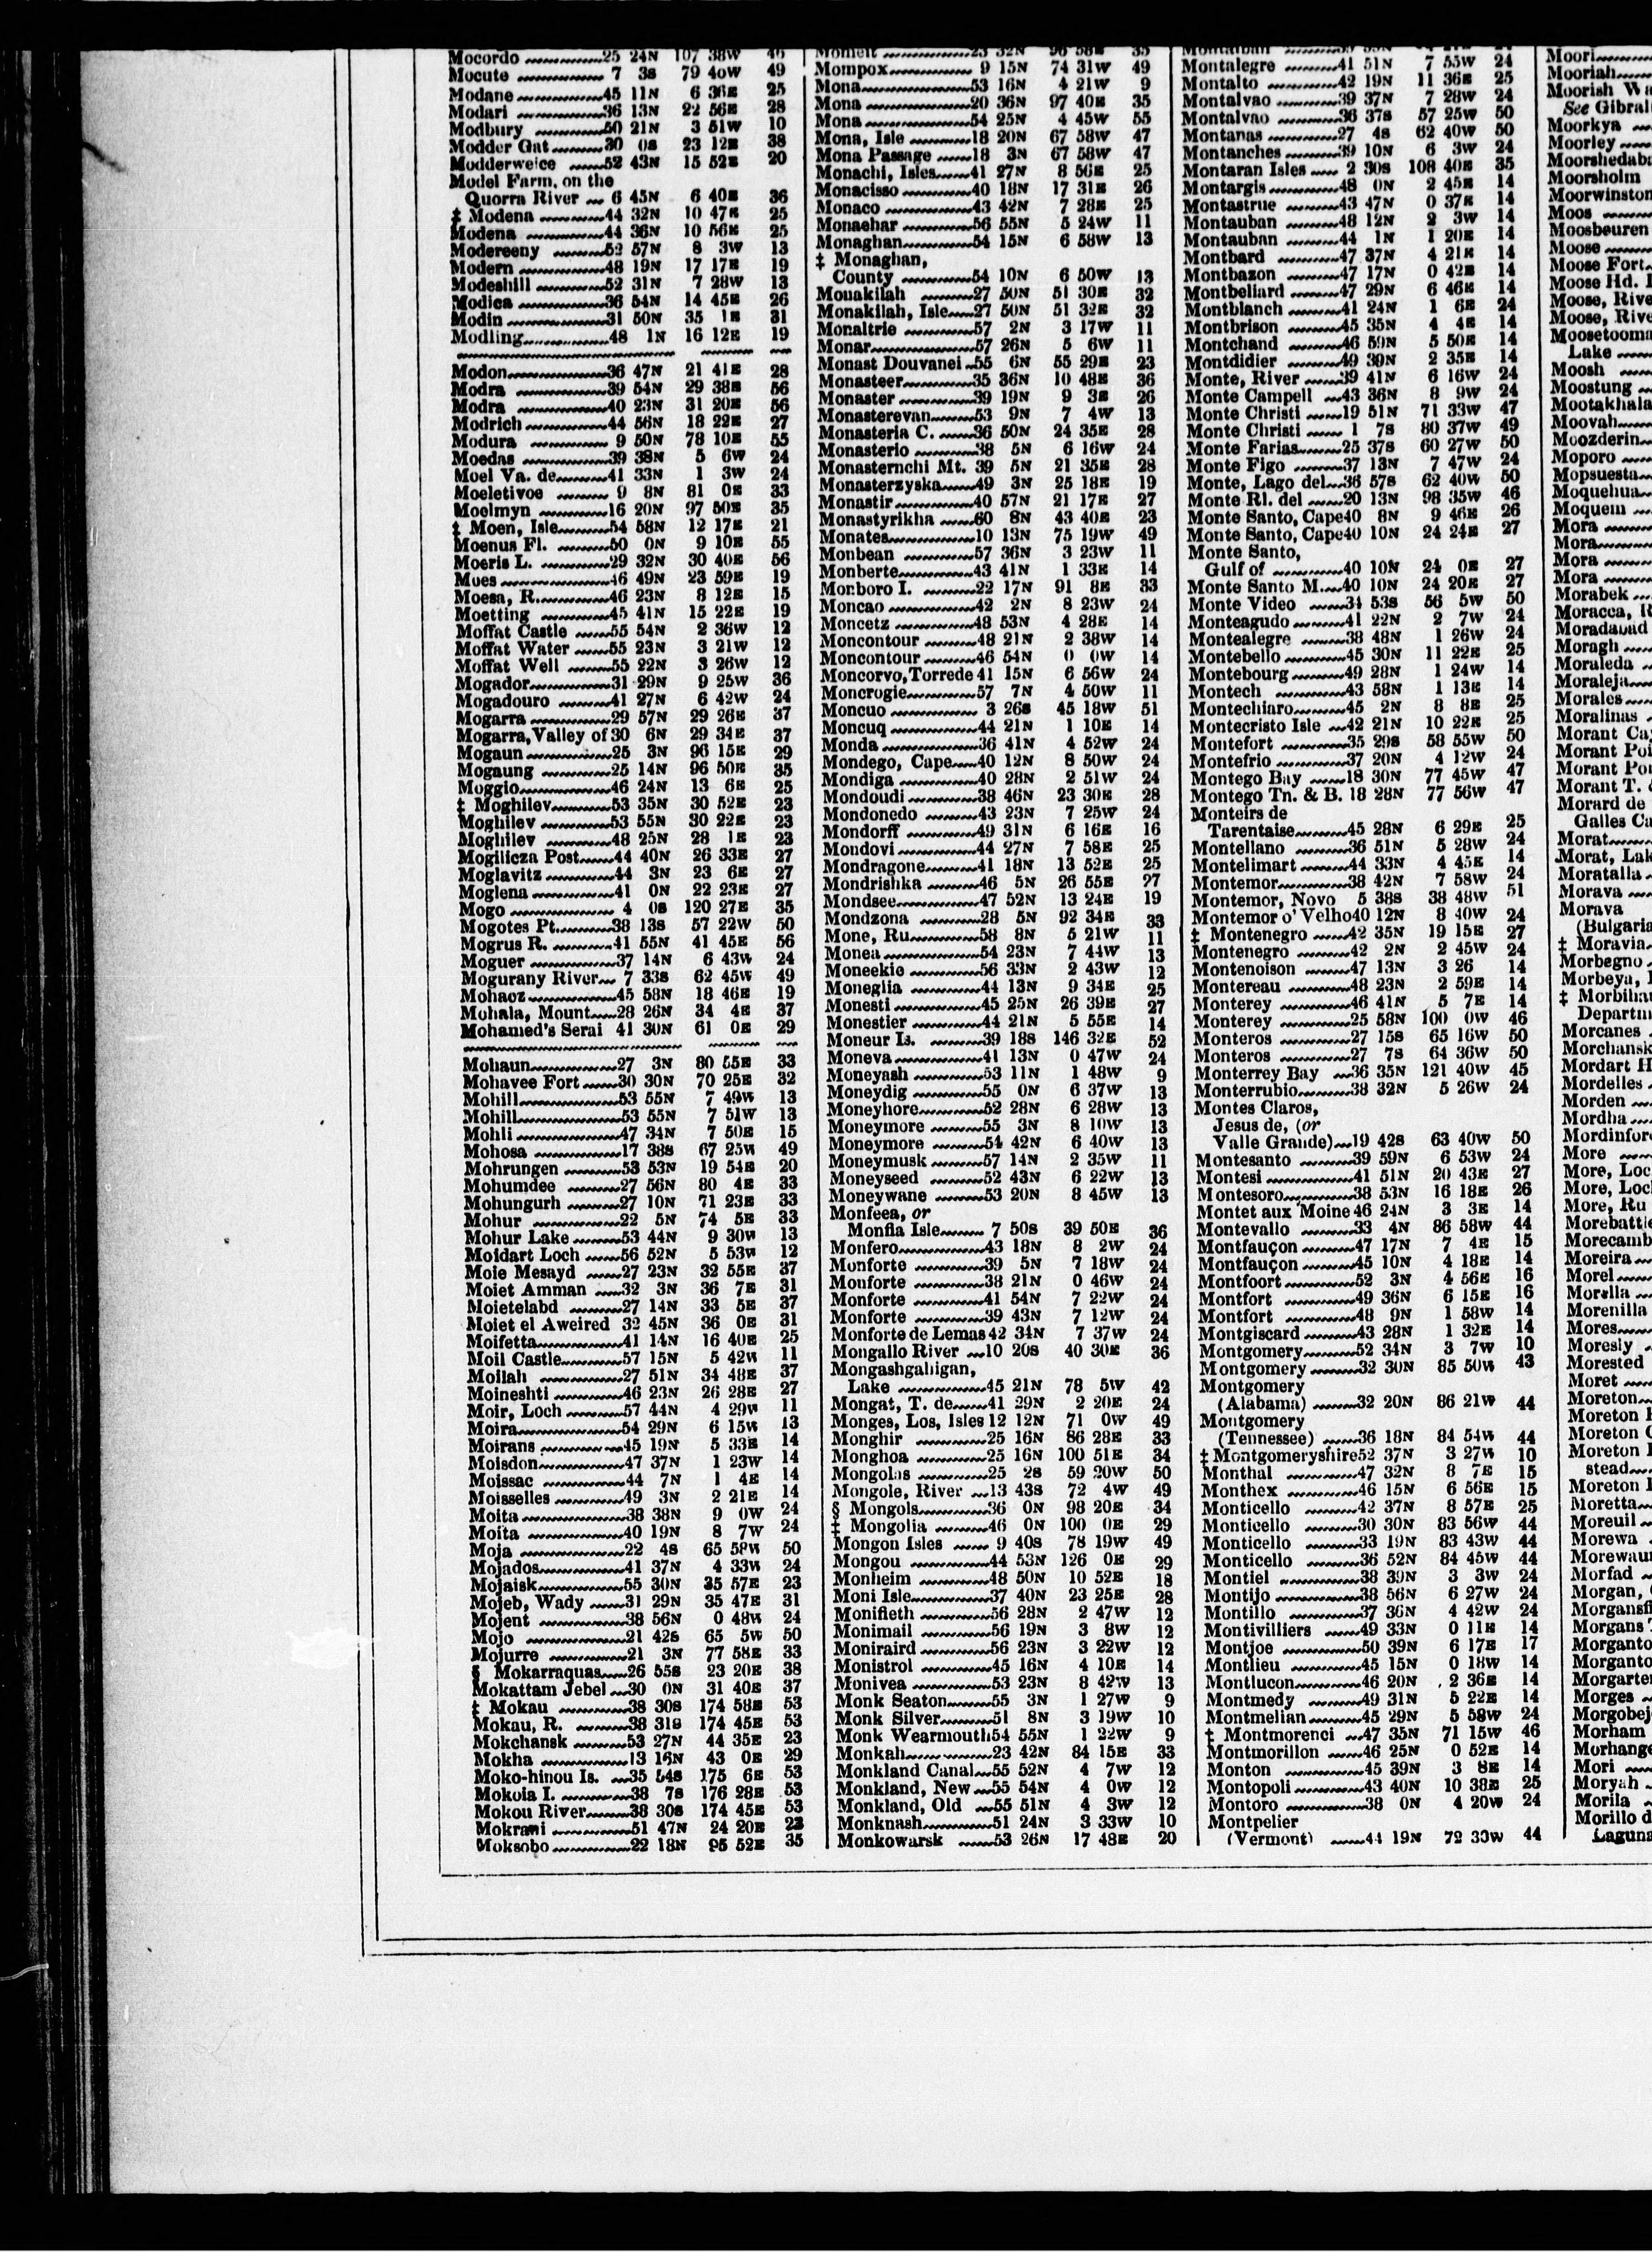 Mocordo 25 24N 107 38W 46
Mocute 7 3S 79 40W 49
Modane 45 11N 6 36E 25
Modari 36 13N 22 56E 28
Modbury 50 21N 3 51W 10
Modder Gat 30 0S 23 12E 38
Modderweice 52 43N 15 52E 20
Model Farm, on the
Quorra River 6 45N 6 40E 36
‡ Modena 44 32N 10 47E 25
Modena 44 36N 10 56E 25
Modereeny 52 57N 8 3W 13
Modern 48 19N 17 17E 19
Modeshill 52 31N 7 28W 13
Modica 36 54N 14 45E 26
Modin 31 50N 35 1E 31
Modling 48 1N 16 12E 19
Modon 36 47N 21 41E 28
Modra 39 54N 29 38E 56
Modra 40 23N 31 20E 56
Modrich 44 56N 18 22E 27
Modura 9 50N 78 10E 55
Moedas 39 38N 5 6W 24
Moel Va. de 41 33N 1 3W 24
Moeletivoe 9 8N 81 0E 33
Moelmyn 16 20N 97 50E 35
‡ Moen, Isle 54 58N 12 17E 21
Moenus Fl. 50 0N 9 10E 55
Moeris L. 29 32N 30 40E 56
Moes 46 49N 23 59E 19
Moesa, R. 46 23N 8 12E 15
Moetting 45 41N 15 22E 19
Moffat Castle 55 54N 2 36W 12
Moffat Water 55 23N 3 21W 12
Moffat Well 55 22N 3 26W 12
Mogador 31 29N 9 25W 36
Mogadouro 41 27N 6 42W 24
Mogarra 29 57N 29 26E 37
Mogarra, Valley of 30 6N 29 34E 37
Mogaun 25 3N 96 15E 29
Mogaung 25 14N 96 50E 35
Moggio 46 24N 13 6E 25
‡ Moghilev 53 35N 30 52E 23
Moghilev 53 55N 30 22E 23
Moghilev 48 25N 28 1E 23
Mogilicza Post 44 40N 26 33E 27
Moglavitz 44 3N 23 6E 27
Moglena 41 0N 22 23E 27
Mogo 4 0S 120 27E 35
Mogotes Pt. 38 13S 57 22W 50
Mogrus R. 41 55N 41 45E 56
Moguer 37 14N 6 43W 24
Mogurany River 7 33S 62 45W 49
Mohacz 45 58N 18 46E 19
Mohala, Mount 28 26N 34 4E 37
Mohamed's Serai 41 30N 61 0E 29
Mohaun 27 3N 80 55E 33
Mohavee Fort 30 30N 70 25E 32
Mohill 53 55N 7 49W 13
Mohill 53 55N 7 51W 13
Mohli 47 34N 7 50E 15
Mohosa 17 38S 67 25W 49
Mohrungen 53 53N 19 54E 20
Mohumdee 27 56N 80 4E 33
Mohungurh 27 10N 71 23E 33
Mohur 22 5N 74 5E 33
Mohur Lake 53 44N 9 30W 13
Moidart Loch 56 52N 5 53W 12
Moie Mesayd 27 23N 32 55E 37
Moiet Amman 32 3N 36 7E 31
Moietelabd 27 14N 33 5E 37
Moiet el Aweired 32 45N 36 0E 31
Moifetta 41 14N 16 40E 25
Moil Castle 57 15N 5 42W 11
Moilah 27 51N 34 48E 37
Moineshti 46 23N 26 28E 27
Moir, Loch 57 44N 4 29W 11
Moira 54 29N 6 15W 13
Moirans 45 19N 5 33E 14
Moisdon 47 37N 1 23W 14
Moissac 44 7N 1 4E 14
Moisselles 49 3N 2 21E 14
Moita 38 38N 9 0W 24
Moita 40 19N 8 7W 24
Moja 22 4S 65 58W 50
Mojados 41 37N 4 33W 24
Mojaisk 55 30N 35 57E 23
Mojeb, Wady 31 29N 35 47E 31
Mojent 38 56N 0 48W 24
Mojo 21 42S 65 5W 50
Mojurre 21 3N 77 58E 33
§ Mokarraquas 26 55S 23 20E 38
Mokattam Jebel 30 0N 31 40E 37
‡ Mokau 38 30S 174 58E 53
Mokau, R. 38 31S 174 45E 53
Mokchansk 53 27N 44 35E 23
Mokha 13 16N 43 0E 29
Moko-hinou Is. 35 54S 175 6E 53
Mokoia I. 38 7S 176 28E 53
Mokou River 38 30S 174 45E 53
Mokrani 51 47N 24 20E 23
Moksobo 22 18N 95 52E 35
Momeit 23 32N 96 58E 35
Mompox 9 15N 74 31W 49
Mona 53 16N 4 21W 9
Mona 20 36N 97 40E 35
Mona 54 25N 4 45W 55
Mona, Isle 18 20N 67 58W 47
Mona Passage 18 3N 67 58W 47
Monachi, Isles 41 27N 8 56E 25
Monacisso 40 18N 17 31E 26
Monaco 43 42N 7 28E 25
Monaehar 56 55N 5 24W 11
Monaghan 54 15N 6 58W 13
‡ Monaghan,
County 54 10N 6 50W 13
Monakilah 27 50N 51 30E 32
Monakilah, Isle 27 50N 51 32E 32
Monaltrie 57 2N 3 17W 11
Monar 57 26N 5 6W 11
Monast Douvanei 55 6N 55 29E 23
Monasteer 35 36N 10 48E 36
Monaster 39 19N 9 3E 26
Monasterevan 53 9N 7 4W 13
Monasteria C. 36 50N 24 35E 28
Monasterio 38 5N 6 16W 24
Monasternchi Mt. 39 5N 21 35E 28
Monasterzyska 49 3N 25 18E 19
Monastir 40 57N 21 17E 27
Monastyrikha 60 8N 43 40E 23
Monates 10 13N 75 19W 49
Monbean 57 36N 3 23W 11
Monberte 43 41N 1 33E 14
Monboro I. 22 17N 91 8E 33
Moncao 42 2N 8 23W 24
Moncetz 48 53N 4 28E 14
Moncontour 48 21N 2 38W 14
Moncontour 46 54N 0 0W 14
Moncorvo, Torrede 41 15N 6 56W 24
Moncrogie 57 7N 4 50W 11
Moncuo 3 26S 45 18W 51
Moncuq 44 21N 1 10E 14
Monda 36 41N 4 52W 24
Mondego, Cape 40 12N 8 50W 24
Mondiga 40 28N 2 51W 24
Mondoudi 38 46N 23 30E 28
Mondonedo 43 23N 7 25W 24
Mondorff 49 31N 6 16E 16
Mondovi 44 27N 7 58E 25
Mondragone 41 18N 13 52E 25
Mondrishka 46 5N 26 55E 27
Mondsee 47 52N 13 24E 19
Mondzona 28 5N 92 34E 33
Mone, Ru 58 8N 5 21W 11
Monea 54 23N 7 44W 13
Moneekie 56 33N 2 43W 12
Moneglia 44 13N 9 34E 25
Monesti 45 25N 26 39E 27
Monestier 44 21N 5 55E 14
Moneur Is. 39 18S 146 32E 52
Moneva 41 13N 0 47W 24
Moneyash 53 11N 1 48W 9
Moneydig 55 0N 6 37W 13
Moneyhore 52 28N 6 28W 13
Moneymore 55 3N 8 10W 13
Moneymore 54 42N 6 40W 13
Moneymusk 57 14N 2 35W 11
Moneyseed 52 43N 6 22W 13
Moneywane 53 20N 8 45W 13
Monfeea, or
Monfia Isle 7 50S 39 50E 36
Monfero 43 18N 8 2W 24
Monforte 39 5N 7 18W 24
Monforte 38 21N 0 46W 24
Monforte 41 54N 7 22W 24
Monforte 39 43N 7 12W 24
Monforte de Lemas 42 34N 7 37W 24
Mongallo River 10 20S 40 30E 36
Mongashgahigan,
Lake 45 21N 78 5W 42
Mongat, T. de 41 29N 2 20E 24
Monges, Los, Isles 12 12N 71 0W 49
Monghir 25 16N 86 28E 33
Monghoa 25 16N 100 51E 34
Mongolas 25 2S 59 20W 50
Mongole, River 13 43S 72 4W 49
§ Mongols 36 0N 98 20E 34
‡ Mongolia 46 0N 100 0E 29
Mongon Isles 9 40S 78 19W 49
Mongou 44 53N 126 0E 29
Monheim 48 50N 10 52E 18
Moni Isle 37 40N 23 25E 28
Monifieth 56 28N 2 47W 12
Monimail 56 19N 3 8W 12
Moniraird 56 23N 3 22W 12
Monistrol 45 16N 4 10E 14
Monivea 53 23N 8 42W 13
Monk Seaton 55 3N 1 27W 9
Monk Silver 51 8N 3 19W 10
Monk Wearmouth 54 55N 1 22W 9
Monkah 23 42N 84 15E 33
Monkland Canal 55 52N 4 7W 12
Monkland, New 55 54N 4 0W 12
Monkland, Old 55 51N 4 3W 12
Monknash 51 24N 3 33W 10
Monkowarsk 53 26N 17 48E 20
Montalban
Montalegre 41 51N 7 55W 24
Montalto 42 19N 11 36E 25
Montalvao 39 37N 7 28W 24
Montalvao 36 37S 57 25W 50
Montanas 27 4S 62 40W 50
Montanches 39 10N 6 3W 24
Montaran Isles 2 30S 108 40E 35
Montargis 48 0N 2 45E 14
Montastruc 43 47N 0 37E 14
Montauban 48 12N 2 3W 14
Montauban 44 1N 1 20E 14
Montbard 47 37N 4 21E 14
Montbazon 47 17N 0 42E 14
Montbeliard 47 29N 6 46E 14
Montblanch 41 24N 1 6E 24
Montbrison 45 35N 4 4E 14
Montchand 46 59N 5 50E 14
Montdidier 49 39N 2 35E 14
Monte, River 39 41N 6 16W 24
Monte Campell 43 36N 8 9W 24
Monte Christi 19 51N 71 33W 47
Monte Christi 1 7S 80 37W 49
Monte Farias 25 37S 60 27W 50
Monte Figo 37 13N 7 47W 24
Monte, Lago del 36 57S 62 40W 50
Monte Rl. del 20 13N 98 35W 46
Monte Santo, Cape 40 8N 9 46E 26
Monte Santo, Cape 40 10N 24 24E 27
Monte Santo,
Gulf of 40 10N 24 0E 27
Monte Santo M. 40 10N 24 20E 27
Monte Video 34 53S 56 5W 50
Monteagudo 41 22N 2 7W 24
Montealegre 38 48N 1 26W 24
Montebello 45 30N 11 22E 25
Montebourg 49 28N 1 24W 14
Montech 43 58N 1 13E 14
Montechiaro 45 2N 8 8E 25
Montecristo Isle 42 21N 10 22E 25
Montefort 35 29S 58 55W 50
Montefrio 37 20N 4 12W 24
Montego Bay 18 30N 77 45W 47
Montego Tn. & B. 18 28N 77 56W 47
Monteirs de
Tarentaise 45 28N 6 29E 25
Montellano 36 51N 5 28W 24
Montelimart 44 33N 4 45E 14
Montemor 38 42N 7 58W 24
Montemor, Novo 5 38S 38 48W 51
Montemor o' Velho 40 12N 8 40W 24
‡ Montenegro 42 35N 19 15E 27
Montenegro 42 2N 2 45W 24
Montenoison 47 13N 3 26 14
Montereau 48 23N 2 59E 14
Monterey 46 41N 5 7E 14
Monterey 25 58N 100 0W 46
Monteros 27 15S 65 16W 50
Monteros 27 7S 64 36W 50
Monterrey Bay 36 35N 121 40W 45
Monterrubio 38 32N 5 26W 24
Montes Claros,
Jesus de, (or
Valle Grande) 19 42S 63 40W 50
Montesanto 39 59N 6 53W 24
Montesi 41 51N 20 43E 27
Montesoro 38 53N 16 18E 26
Montet aux Moine 46 24N 3 3E 14
Montevallo 33 4N 86 58W 44
Montfauçon 47 17N 7 4E 15
Montfauçon 45 10N 4 18E 14
Montfoort 52 3N 4 56E 16
Montfort 49 36N 6 15E 16
Montfort 48 9N 1 58W 14
Montgiscard 43 28N 1 32E 14
Montgomery 52 34N 3 7W 10
Montgomery 32 30N 85 50W 43
Montgomery
(Alabama) 32 20N 86 21W 44
Montgomery
(Tennessee) 36 18N 84 54W 44
‡ Montgomeryshire 52 37N 3 27W 10
Monthal 47 32N 8 7E 15
Monthex 46 15N 6 56E 15
Monticello 42 37N 8 57E 25
Monticello 30 30N 83 56W 44
Monticello 33 19N 83 43W 44
Monticello 36 52N 84 45W 44
Montiel 38 39N 3 3W 24
Montijo 38 56N 6 27W 24
Montillo 37 36N 4 42W 24
Montivilliers 49 33N 0 11E 14
Montjoe 50 39N 6 17E 17
Montlieu 45 15N 0 18W 14
Montlucon 46 20N 2 36E 14
Montmedy 49 31N 5 22E 14
Montmelian 45 29N 5 58W 24
‡ Montmorenci 47 35N 71 15W 46
Montmorillon 46 25N 0 52E 14
Monton 45 39N 3 8E 14
Montopoli 43 40N 10 38E 25
Montoro 38 0N 4 20W 24
Montpelier
(Vermont) 44 19N 72 30W 44
Moori
Mooriah
Moorish Wa
See Gibral
Moorkya
Moorley
Moorshedaba
Moorsholm
Moorwinston
Moos
Moosbeuren
Moose
Moose Fort
Moose Hd. I
Moose, Rive
Moose, Rive
Moosetooma
Lake
Moosh
Moostung
Mootakhala
Moovah
Moozderin
Moporo
Mopsuesta
Moquehua
Moquem
Mora
Mora
Mora
Mora
Morabek
Moracca, R
Moradabad
Moragh
Moraleda
Moraleja
Morales
Moralinas
Morant Cay
Morant Poi
Morant Poi
Morant T. &
Morard de
Galles Ca
Morat
Morat, Lak
Moratalla
Morava
Morava
(Bulgaria
‡ Moravia
Morbegno
Morbeya, I
‡ Morbihan
Departm
Morcanes
Morchansk
Mordart H
Mordelles
Morden
Mordha
Mordinfor
More
More, Loc
More, Loch
More, Ru
Morebattle
Morecamb
Moreira
Morel
Morella
Morenilla
Mores
Moresly
Morested
Moret
Moreton
Moreton I
Moreton C
Moreton I
stead
Moreton I
Moretta
Moreuil
Morewa
Morewaun
Morfad
Morgan, C
Morgansfi
Morgans T
Morganto
Morganto
Morgarten
Morges
Morgobej
Morham
Morhange
Mori
Moryah
Morila
Morillo d
Laguna